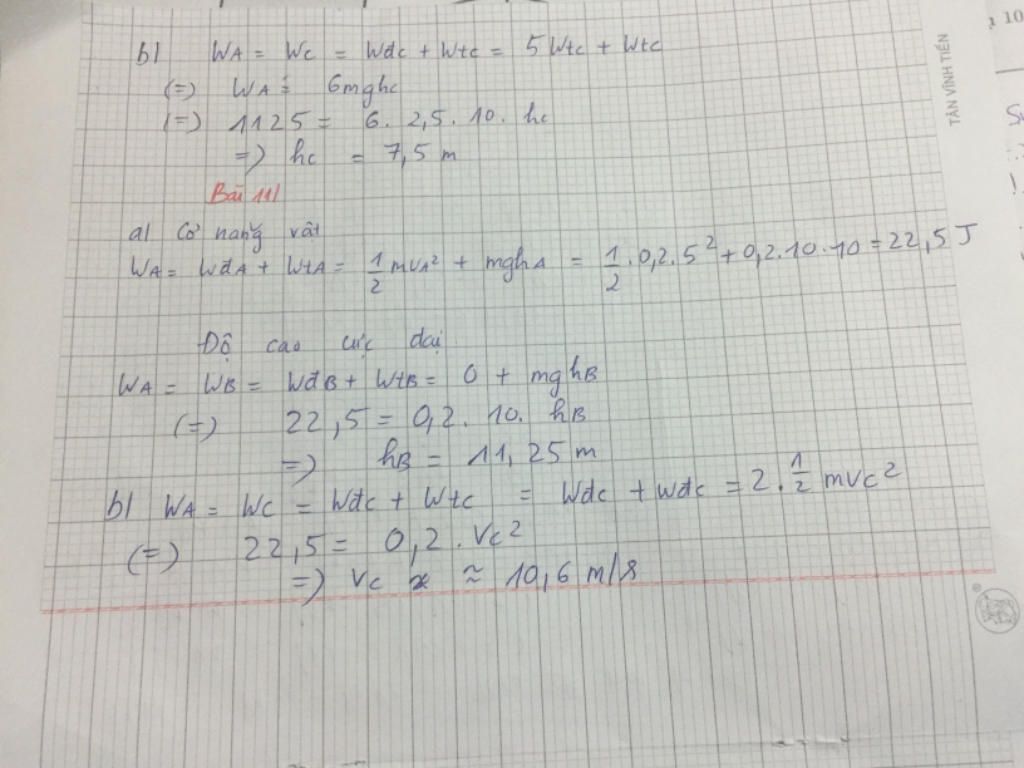 b) WA = WC = Wđc + Wtc = 5Wtc + Wtc
(=) WA = 6mghc
(=) 1125 = 6. 2,5. 10. hc
=) hc = 7,5 m
Bài 11/
a) Cơ năng vật
WA = WđA + WtA = 1/2 mvA² + mghA = 1/2 . 0,2. 5² + 0,2. 10. 10 = 22,5 J
Độ cao cực đại
WA = WB = WđB + WtB = 0 + mghB
(=) 22,5 = 0,2. 10. hB
=) hB = 11,25 m
b) WA = WC = Wđc + Wtc = Wđc + Wđc = 2. 1/2 mvc²
(=) 22,5 = 0,2. Vc²
=) Vc ≈ 10,6 m/s
TÂN VĨNH TIẾN
10